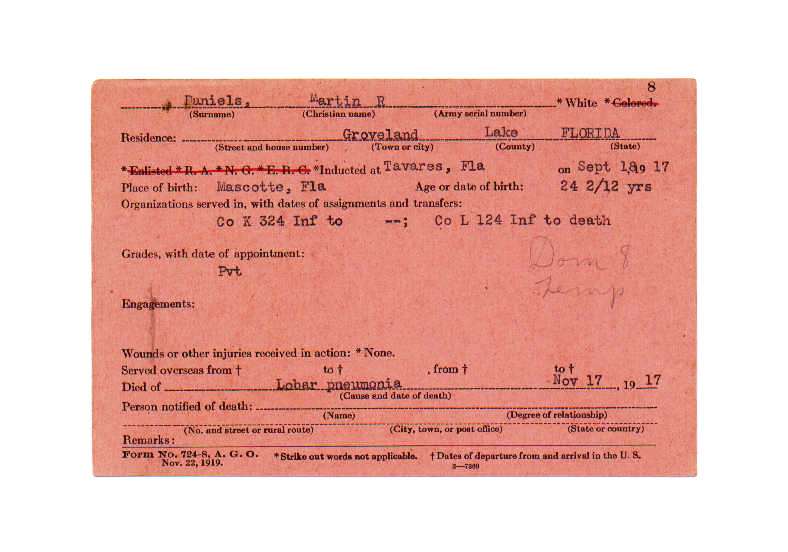 8
Daniels, Martin R * White * Colored.
(Surname) (Christian name) (Army serial number)
Residence: Groveland Lake FLORIDA
(Street and house number) (Town or city) (County) (State)
*Enlisted *R. A. *N. G. *E. R. C. *Inducted at Tavares, Fla on Sept 18, 19 17
Place of birth: Mascotte, Fla Age or date of birth: 24 2/12 yrs
Organizations served in, with dates of assignments and transfers:
Co K 324 Inf to --; Co L 124 Inf to death
Grades, with date of appointment:
Pvt
Dom 8
Temp
Engagements:
Wounds or other injuries received in action: * None.
Served overseas from † to † , from † to †
Died of Lobar pneumonia Nov 17 , 19 17
(Cause and date of death)
Person notified of death:
(Name) (Degree of relationship)
(No. and street or rural route) (City, town, or post office) (State or country)
Remarks:
Form No. 724-8, A. G. O. *Strike out words not applicable. † Dates of departure from and arrival in the U. S.
Nov. 22, 1919. 3—7369